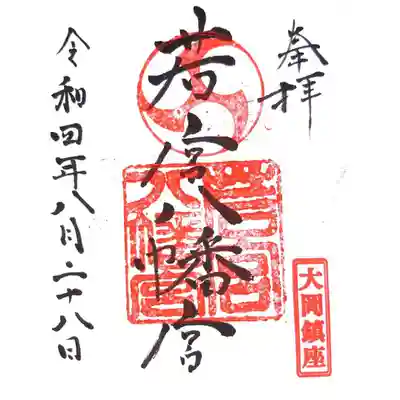 奉拝
大岡鎮座
若宮八幡宮
令和四年八月二十八日